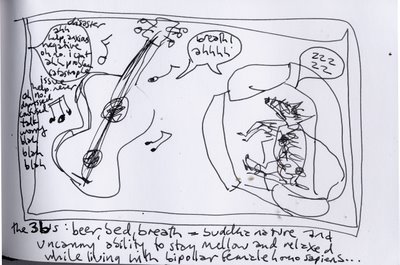 disaster
ahh
help
negative
i can't
ahh problem
catastrophe
issue
help never
oh no
talk
worry
blah
blah
blah
breath!
ahhhh
zzz
zz
the 3b's: beer, bed, breath = buddha nature and
uncanny ability to stay mellow and relaxed
while living with bipolar female homo sapiens...